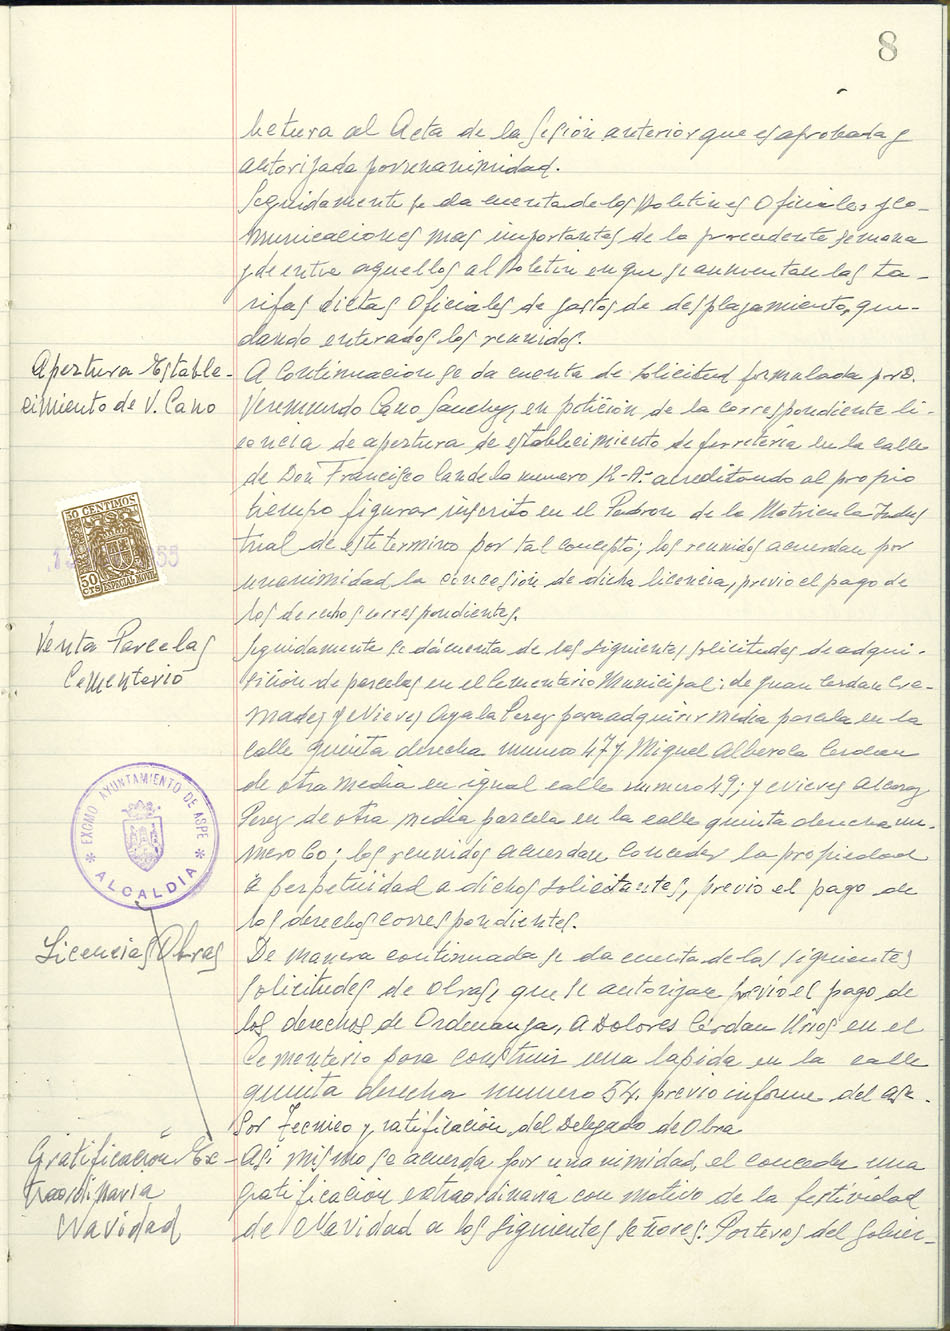 8
lectura al Acta de la sesión anterior que es aprobada y
autorizada por unanimidad.
Seguidamente se da cuenta de los Boletines Oficiales y co-
municaciones mas importantes de la precedente semana
y de entre aquellos al Boletin en que se aumentan las ta-
rifas dietas Oficiales de gastos de desplazamiento, que-
dando enterados los reunidos.
Apertura Estable-
cimiento de V. Cano
A continuacion se da cuenta de solicitud formulada por D.
Veremundo Cano Sanchez, en petición de la correspondiente li-
cencia de apertura de establecimiento de ferreteria en la calle
de Don Francisco Candela numero 12-A- acreditando al propio
tiempo figurar inscrito en el Padron de la Matricula Indus
trial de este termino por tal concepto; los reunidos acuerdan por
unanimidad la concesión de dicha licencia, previo el pago de
los derechos correspondientes.
50 CENTIMOS
50
CTS
ESPECIAL MOVIL
55
Venta Parcelas
Cementerio
Seguidamente se dá cuenta de las siguientes solicitudes de adqui-
sición de parcelas en el Cementerio Municipal: de Juan Cerdan Cre-
mades y Nieves Ayala Perez para adquirir media parcela en la
calle quinta derecha numero 47 y Miguel Alberola Cerdan
de otra media en igual calle numero 49; y Nieves Alcaraz
Perez de otra media parcela en la calle quinta derecha nu-
mero 60; los reunidos acuerdan conceder la propiedad
a perpetuidad a dichos solicitantes, previo el pago de
los derechos correspondientes.
EXCMO AYUNTAMIENTO DE ASPE
* ALCALDIA *
Licencias Obras
De manera continuada se da cuenta de las siguientes
solicitudes de obras, que se autorizan previo el pago de
los derechos de Ordenanza, a Dolores Cerdan Urios en el
Cementerio para construir una lapida en la calle
quinta derecha numero 54, previo informe del Ase-
sor Tecnico y ratificación del Delegado de Obra
Gratificación Ex-
traordinaria
Navidad
Asi mismo se acuerda por unanimidad, el conceder una
gratificación extraordinaria con motivo de la festividad
de Navidad a los siguientes señores: Porteros del Gobier-